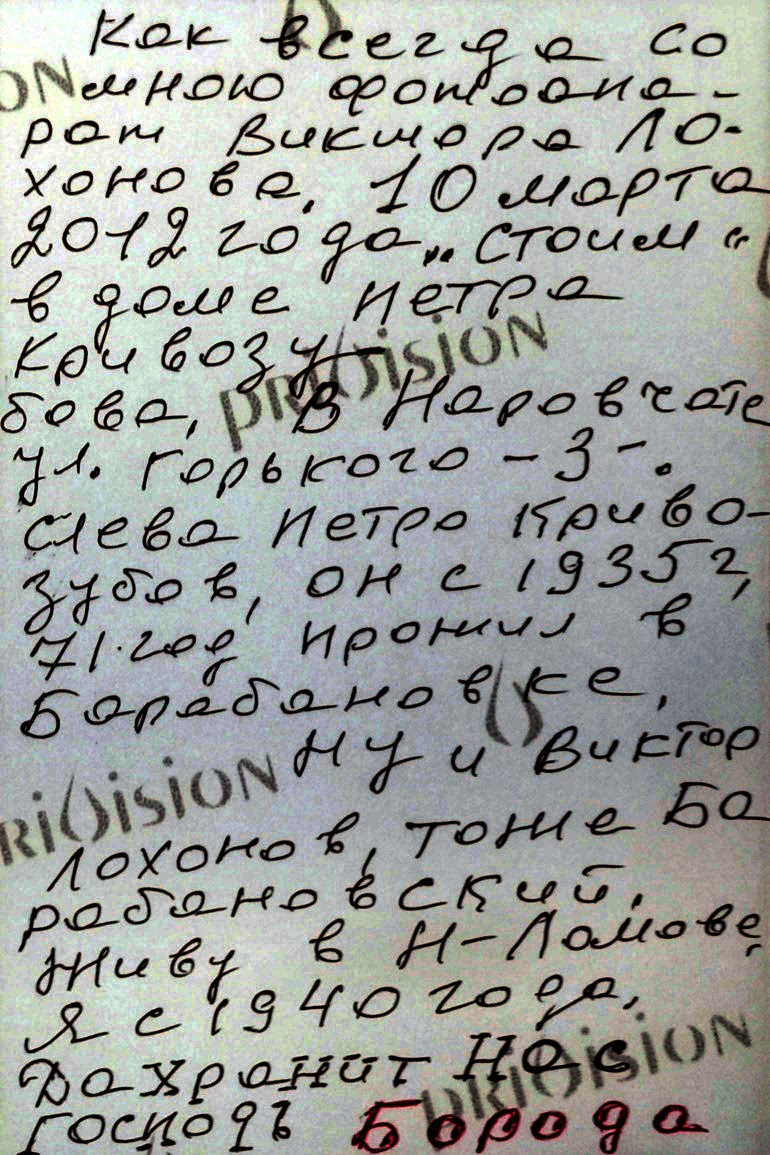 Как всегда со
мною фотоапа-
рат Виктора Ло-
хонова. 10 марта
2012 года „стоим“
в доме Петра
Кривозу-
бова, В Наровчате
ул. Горького - 3 -.
Слева Петро Криво-
зубов, он с 1935 г,
71.год прожил в
Барабановке,
Ну и Виктор
Лохонов, тоже Ба
рабановский.
Живу в Н-Ломове,
Я с 1940 года,
Дахранит Нас
Господь Борода
priOision
priOision
priOision